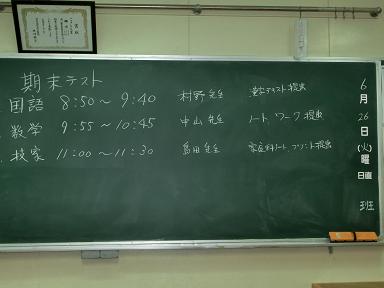 賞状
期末テスト
国語 8:50〜9:40 村野先生 漢字テスト提出
数学 9:55〜10:45 中山先生 ノート、ワーク提出
技家 11:00〜11:30 島田先生 家庭科ノート、プリント提出
6月26日(火)曜
日直
班